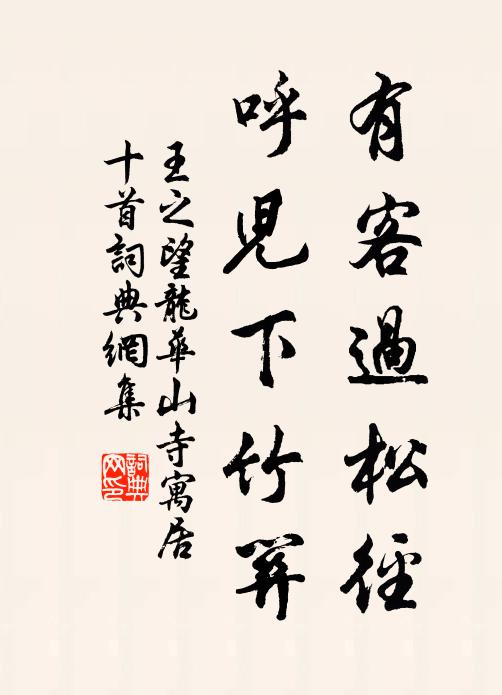 有客過松徑
呼兒下竹關
王之望龍華山寺寓居
十首詞典網集
詞典
网印